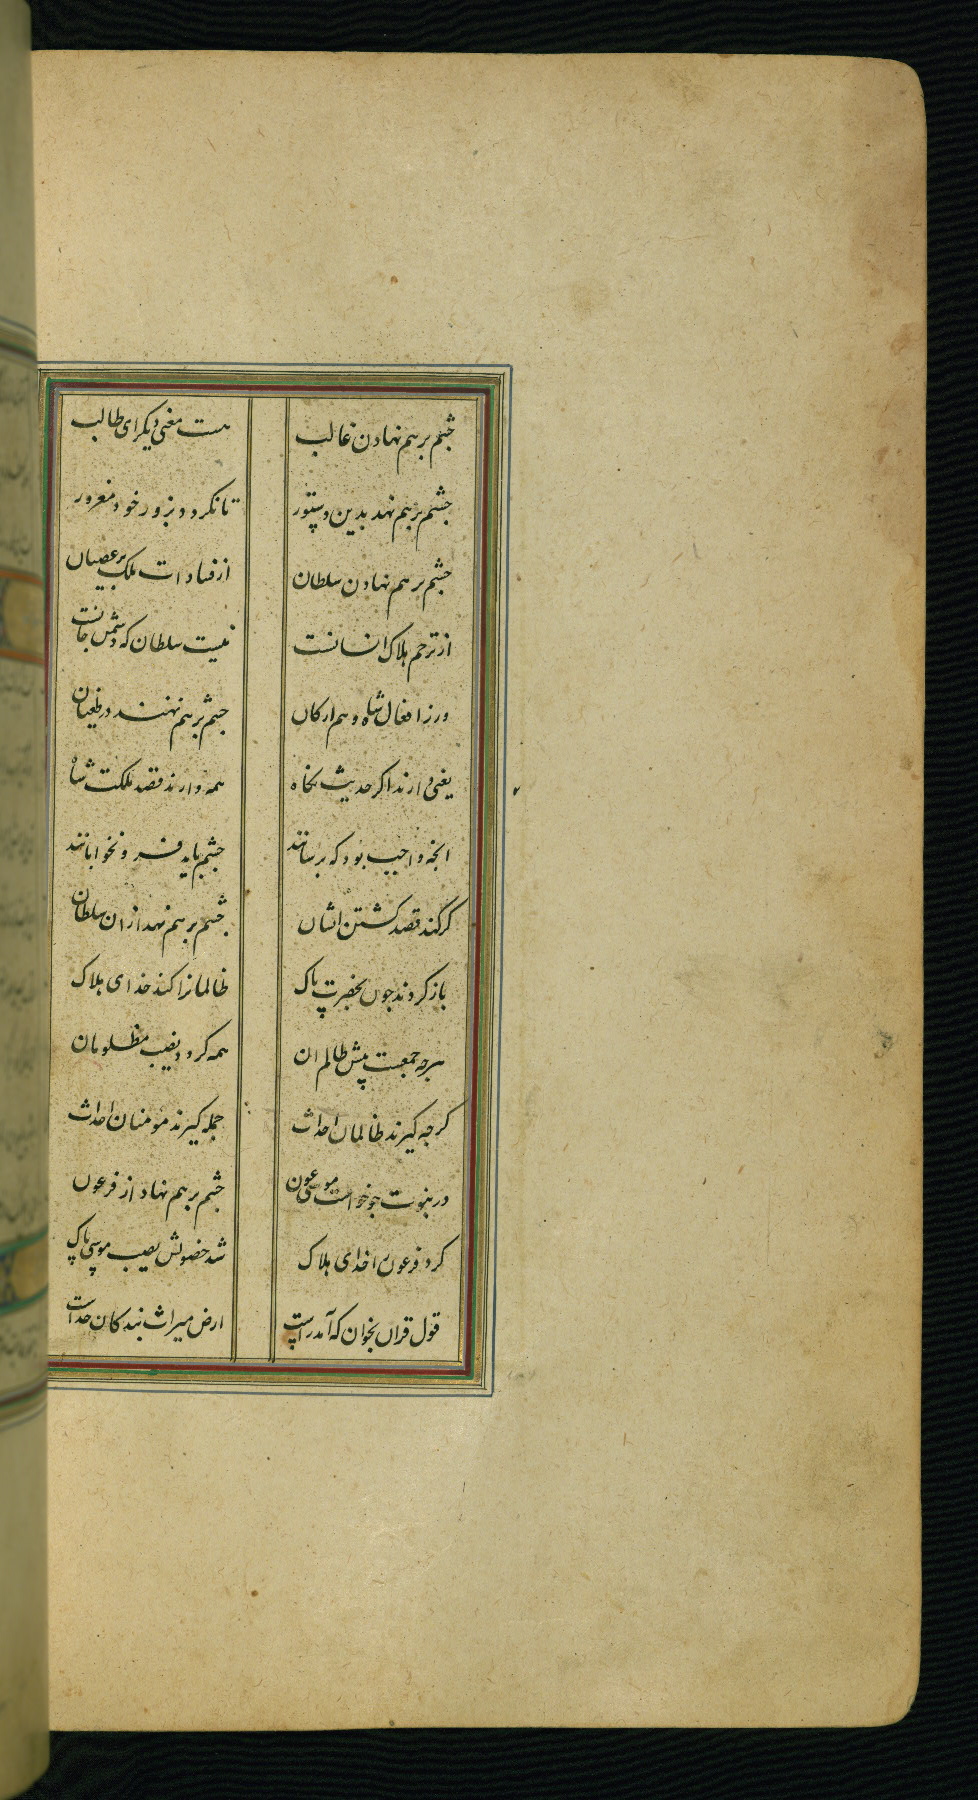 چشم بر هم نهادن غالب هست معنی دیکر ای طالب
چشم بر هم نهد بدین دستور تا نکردد بزور خود مغرور
چشم بر هم نهادن سلطان از فسادات ملک بر عصیان
از ترحم هلاک انسانست نیست سلطان که دشمن جانست
ور ز افعال شاه و هم ارکان چشم بر هم نهند در طغیان
یعنی ار نداکر حدیث همه دارند قصد مملکت شاه
انچه واجب بود که برسانند چشم باید و نخوابانند
کر کند قصد کشتن ایشان چشم بر هم نهد از ان سلطان
باز کردند چون بحضرت پاک ظالمانرا کند خدای هلاک
هر چه جمعست پیش ظالم ان همه کردد نصیب مظلومان
کر چه کیرند ظالمان احداث جمله کیرند مومنان احداث
در نبوت چو خواست موسی عون چشم بر هم نهاد از فرعون
کرد فرعون را خدای هلاک شد نصیب موسی پاک
قول قران بخوان که آمد راست ارض میراث بندکان خداست